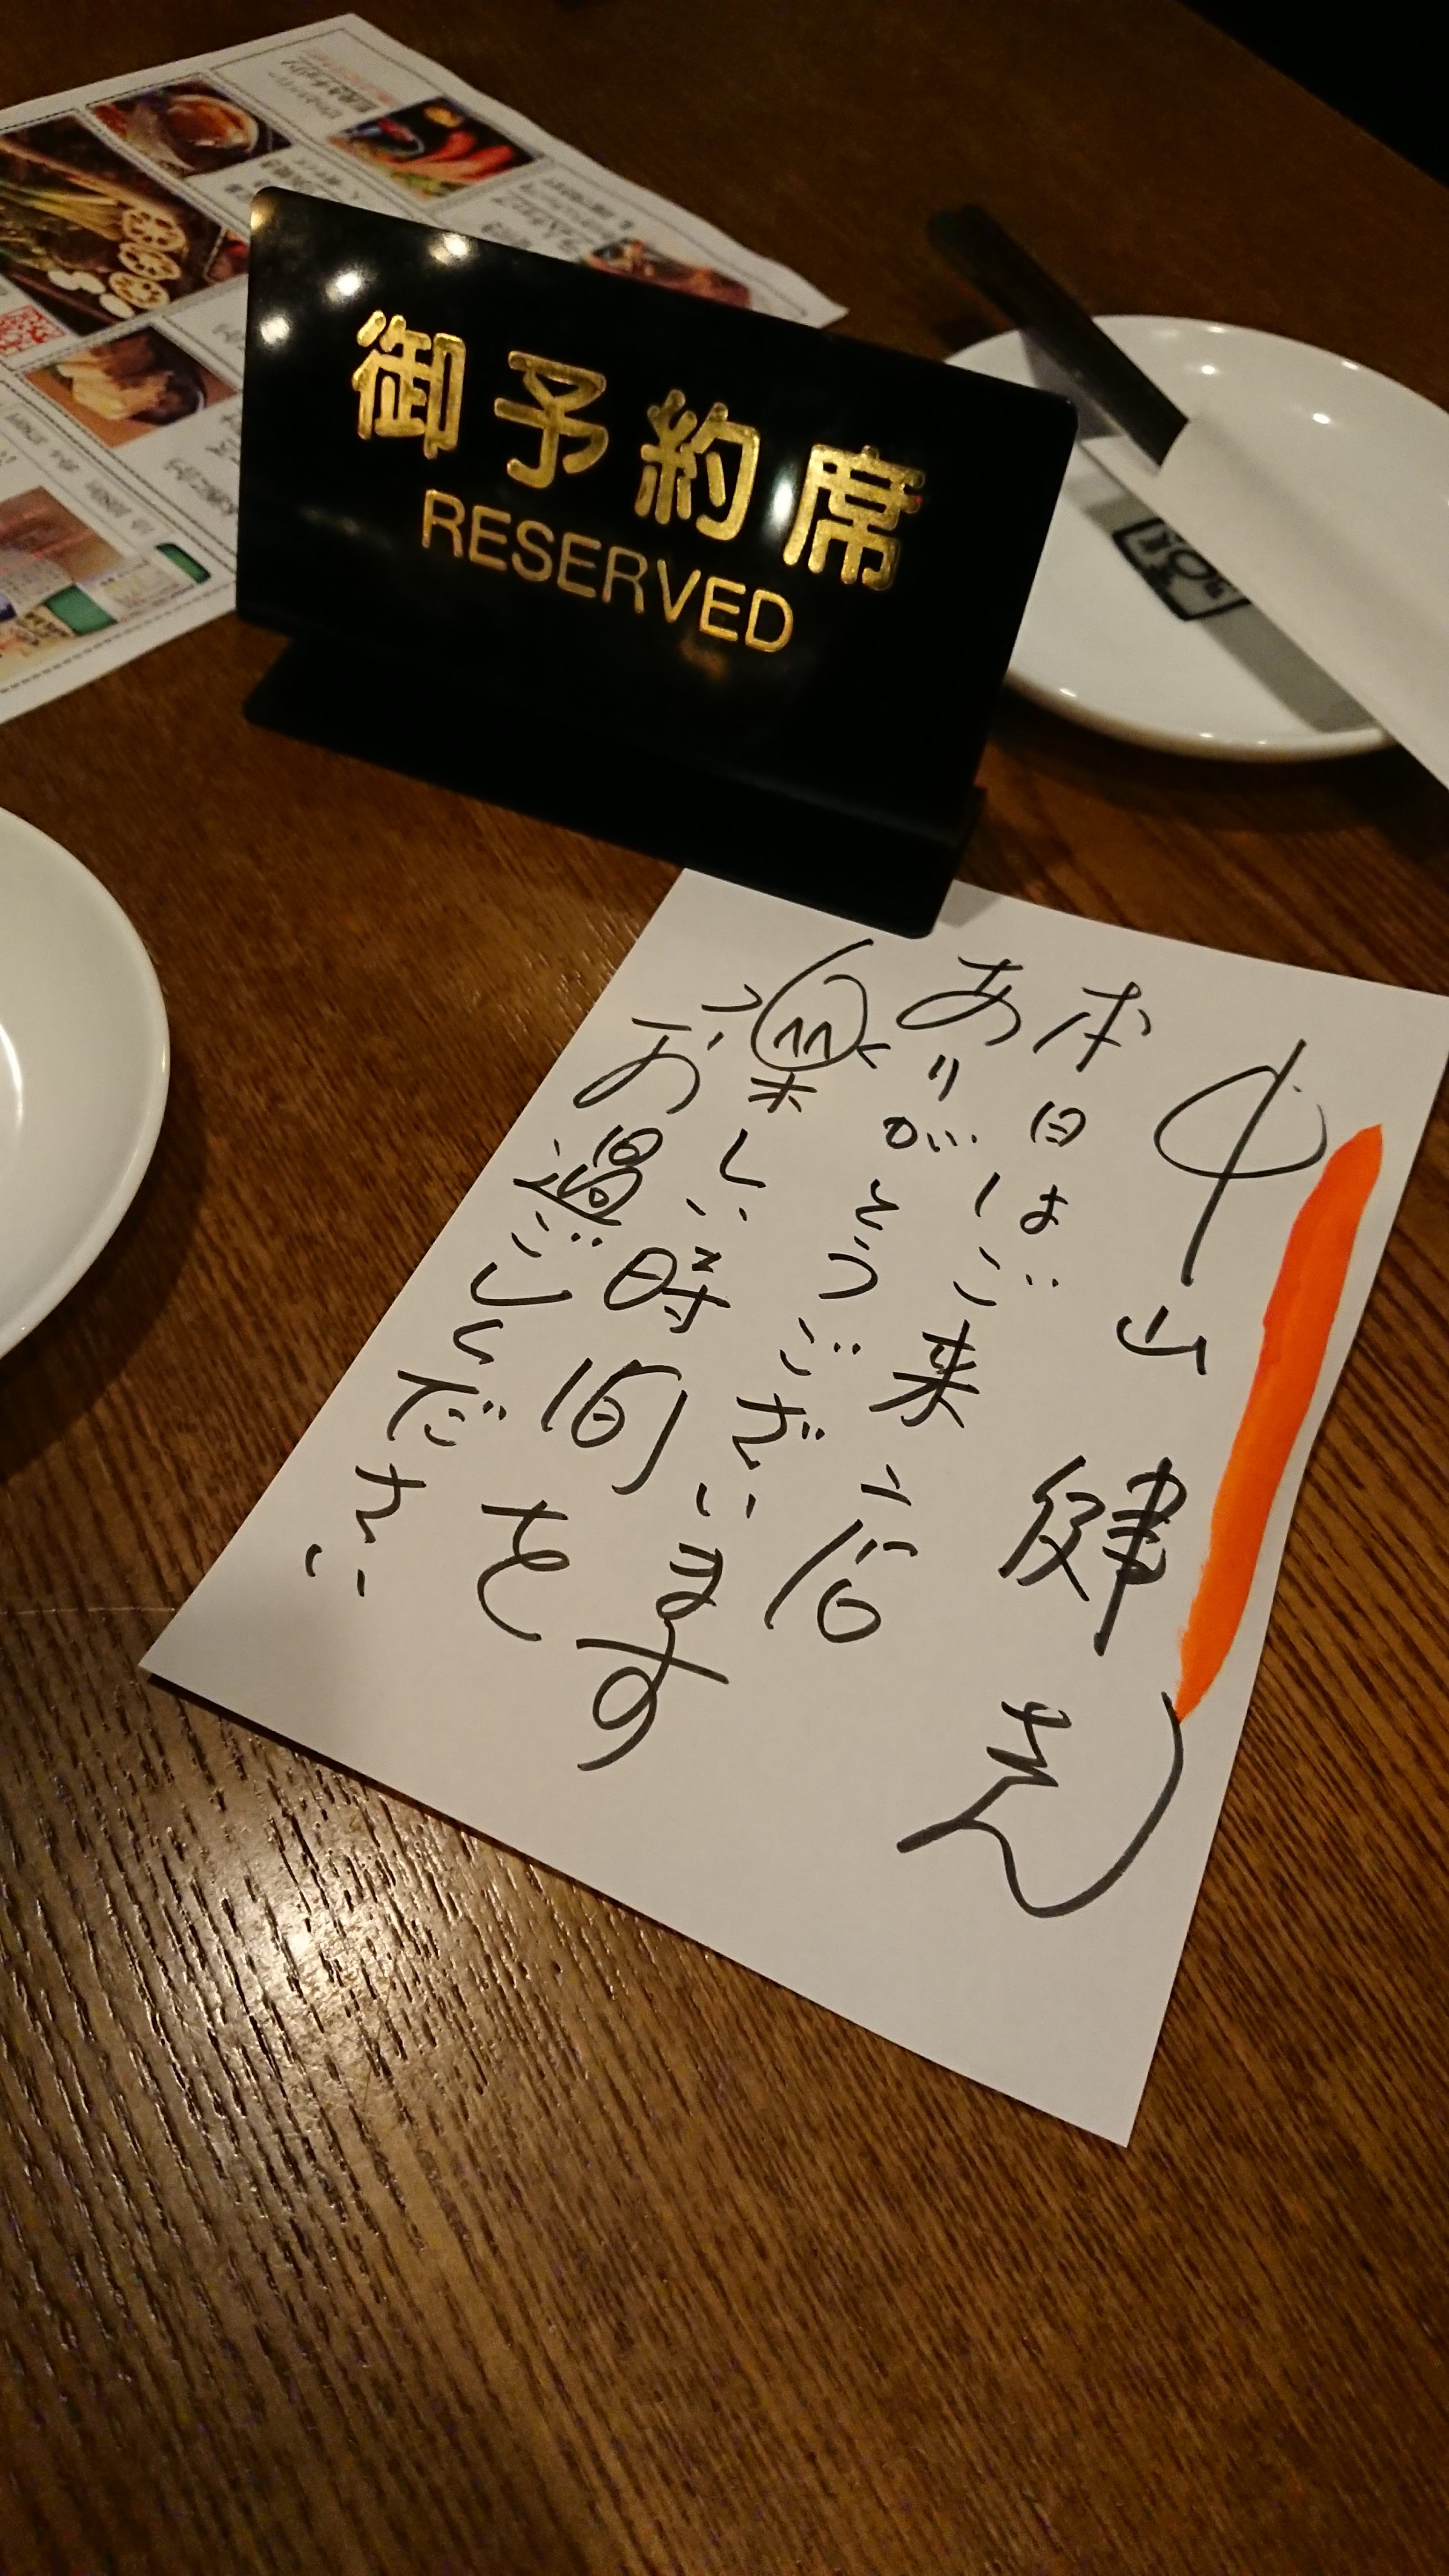 御予約席
RESERVED
中山 健 さん
本日はご来店
ありがとうございます
楽しい時間を
お過ごしください